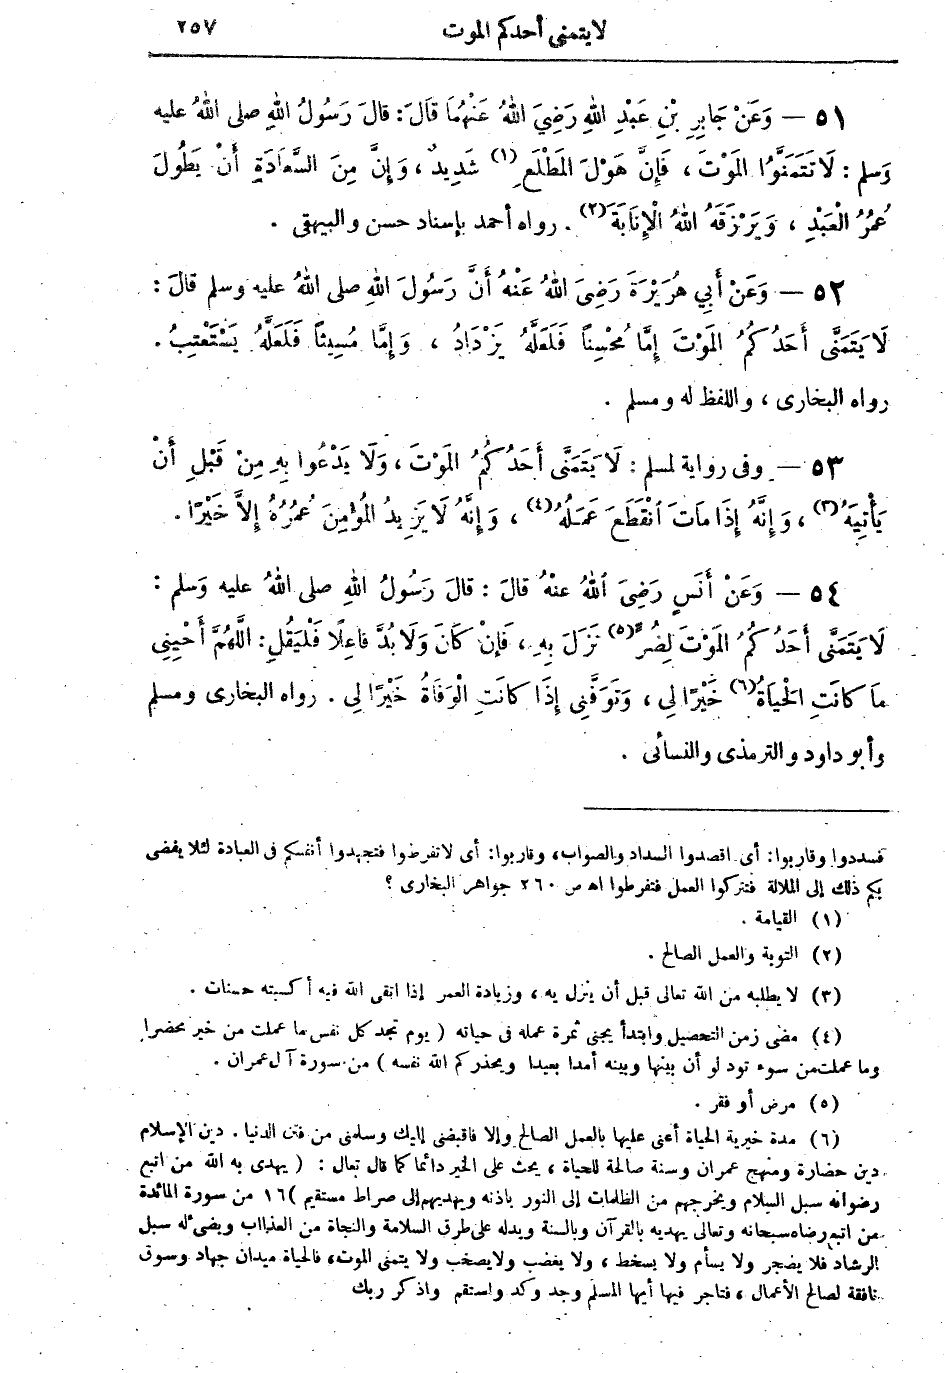 لا يتمنى أحدكم الموت ٢٥٧
٥١ — وَعَنْ جَابِرِ بْنِ عَبْدِ اللهِ رَضِيَ اللهُ عَنْهُمَا قَالَ: قالَ رَسُولُ اللهِ صلى اللهُ عليه
وَسلم : لَا تَتَمَنَّوُا المَوْتَ ، فَإِنَّ هَوْلَ المَطْلَعِ (١) شَدِيدٌ ، وَإِنَّ مِنَ السَّعَادَةِ أَنْ يَطُولَ
عُمْرُ الْعَبْدِ ، وَيَرْزُقَهُ اللهُ الْإِنَابَةَ (٢) . رواه أحمد بإسناد حسن والبيهقى .
٥٢ — وَعَنْ أَبِي هُرَيْرَةَ رَضِيَ اللهُ عَنْهُ أَنَّ رَسُولَ اللهِ صلى اللهُ عليه وسلم قالَ :
لَا يَتَمَنَّى أَحَدُكُمُ المَوْتَ إِمَّا مُحْسِناً فَلَعَلَّهُ يَزْدَادُ ، وَإِمَّا مُسِيئاً فَلَعَلَّهُ يَسْتَعْتِبُ .
رواه البخارى ، واللفظ له ومسلم .
٥٣ — وفى رواية لمسلم : لَا يَتَمَنَّى أَحَدُكُمُ المَوْتَ ، وَلَا يَدْعُوا بِهِ مِنْ قَبْلِ أَنْ
يَأْتِيَهُ (٣) ، وَإِنَّهُ إِذَا مَاتَ انْقَطَعَ عَمَلُهُ (٤) ، وَإِنَّهُ لَا يَزِيدُ المُؤْمِنَ عُمُرُهُ إِلاَّ خَيْرًا .
٥٤ — وَعَنْ أَنَسٍ رَضِيَ اللهُ عنهُ قالَ : قالَ رَسُولُ اللهِ صلى اللهُ عليه وَسلم :
لَا يَتَمَنَّى أَحَدُكُمُ المَوْتَ لِضُرٍّ (٥) نَزَلَ بِهِ ، فَإِنْ كَانَ وَلَا بُدَّ فاعِلًا فَلْيَقُلِ : اللَّهُمَّ أَحْيِنِي
مَا كانَتِ الحَيَاةُ (٦) خَيْرًا لِي ، وَتَوَفَّنِي إِذَا كانَتِ الْوَفَاةُ خَيْرًا لِي . رواه البخارى ومسلم
وأبو داود والترمذى والنسائى .
فسددوا وقاربوا : أى اقصدوا السداد والصواب ، وقاربوا : أى لاتفرطوا فتجهدوا أنفسكم فى العبادة لئلا يفضى
بكم ذلك إلى الملالة فتتركوا العمل فتفرطوا اه ص ٢٦٠ جواهر البخارى ؟
(١) القيامة .
(٢) التوبة والعمل الصالح .
(٣) لا يطلبه من الله تعالى قبل أن ينزل به ، وزيادة العمر إذا اتقى الله فيه أكسبته حسنات .
(٤) مضى زمن التحصيل وابتدأ يجنى ثمرة عمله فى حياته ( يوم تجد كل نفس ما عملت من خير محضرا
وما عملت من سوء تود لو أن بينها وبينه أمدا بعيدا ويحذركم الله نفسه ) من سورة آل عمران .
(٥) مرض أو فقر .
(٦) مدة خيرية الحياة أعنى عليها بالعمل الصالح وإلا فاقبضنى إليك وسلمنى من فتن الدنيا . دين الإسلام
دين حضارة ومنهج عمران وسنة صالحة للحياة ، يحث على الخير دائما كما قال تعال : ( يهدى به الله من اتبع
رضوانه سبل السلام ويخرجهم من الظلمات إلى النور باذنه ويهديهم إلى صراط مستقيم ) ١٦ من سورة المائدة
من اتبع رضاه سبحانه وتعالى يهديه بالقرآن وبالسنة ويدله على طرق السلامة والنجاة من العذاب ويضىء له سبل
الرشاد فلا يضجر ولا يسأم ولا يسخط ، ولا يغضب ولا يصخب ولا يتمنى الموت ، فالحياة ميدان جهاد وسوق
نافقة لصالح الأعمال ، فتاجر فيها أيها المسلم وجد وكد واستقم واذكر ربك